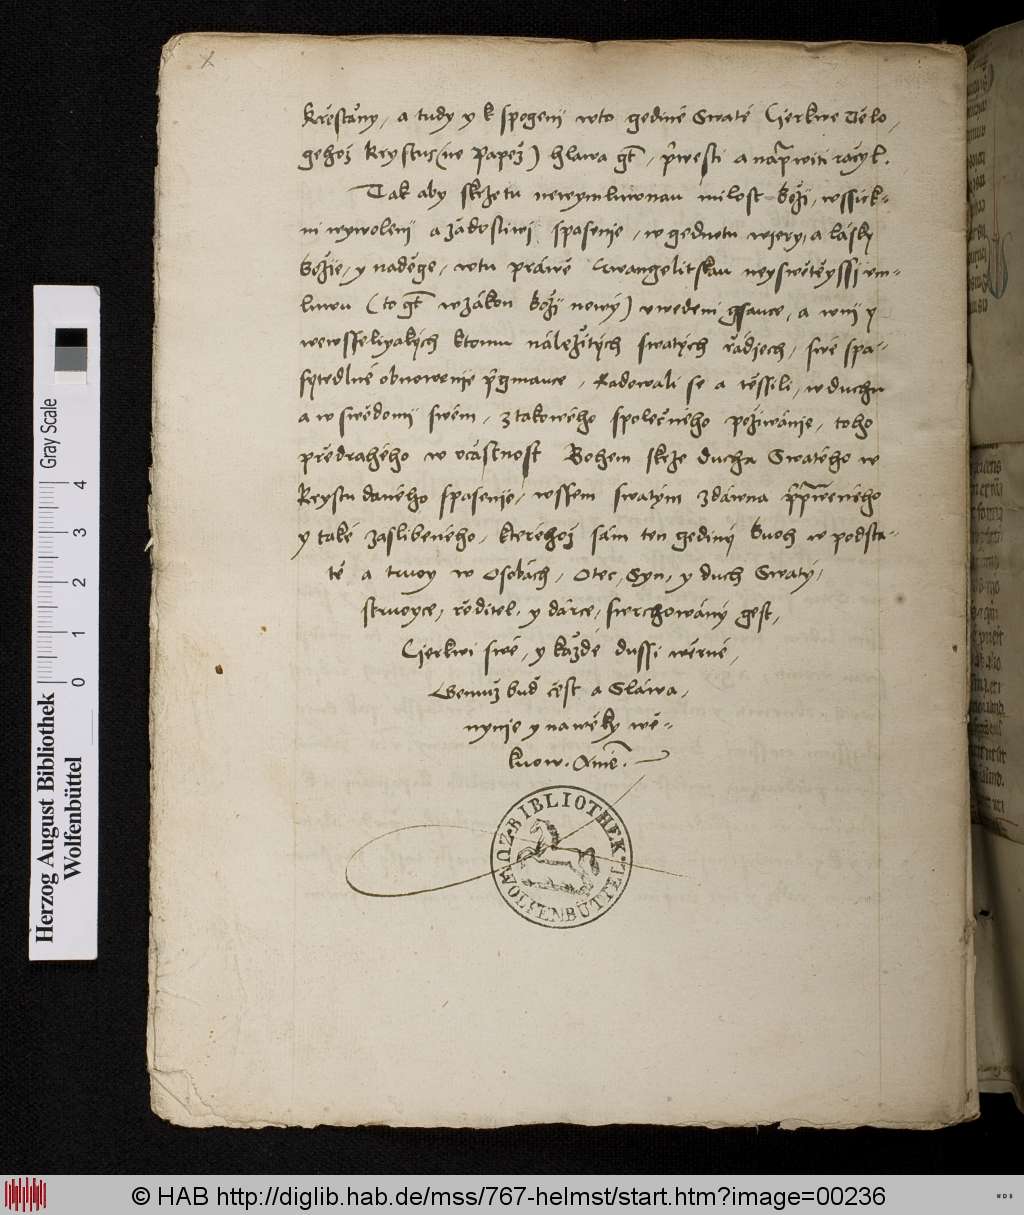 Křesťany, a tudy y k spogenij wto gediné Swaté Cjerkwe Tělo,
gehož Krystus (ne Papež) hlawa gt̄, p̄westi a nap̄witi ráčyl.
Tak aby skrze tu newymluwnau milost Boži, wssick=
ni wywolenij a žádostiwi spasenie, w gednotu wjery, a lásky
Božie, y naděge, wtu práwě Ewangelitskau neyswětěyssi sm=
luwu (to gt̄ w zákon Boži nowý) uwedeni gsauce, a w nij y
wewsselikých ktomu náležitých swatých řádjech, swé spa=
sytedlné obnowenie p̄gmauce, Radowali se a těssili, w duchu
a w swědomij swém, z takowého společného požiwánie, toho
předrahého w včastnost Bohem skrze ducha Swatého w
Krystu daného spasenie, wssem swatým zdáwna p̄p̄weného
y také zaslibeného, kteréhož sám ten gediný Buoh w podsta=
tě a truoy w Osobách, Otec, Syn, y duch Swatý,
struoyce, ředitel, y dárce, swrchowaný gest,
Cjerkwi swé, y každé dussi wěrné,
Gemuž buď čest a Sláwa,
nynie y nawěky wě=
kuow. Amē.
BIBLIOTHEK ZU WOLFENBÜTTEL
Herzog August Bibliothek
Wolfenbüttel
Gray Scale
0 1 2 3 4
© HAB http://diglib.hab.de/mss/767-helmst/start.htm?image=00236
WDB